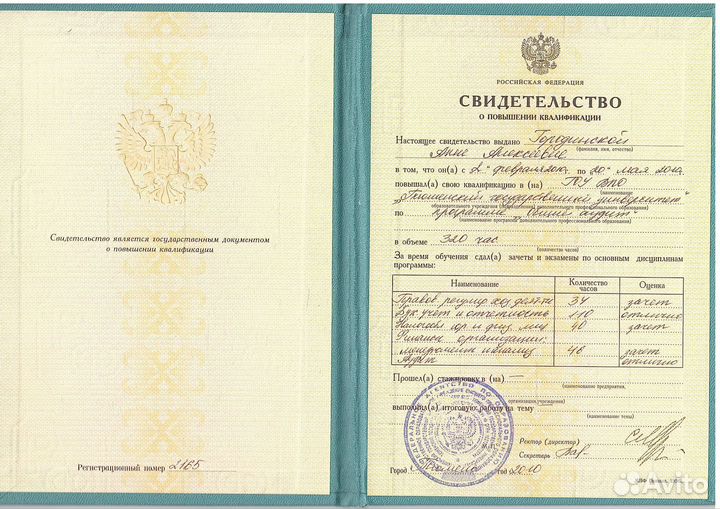 Свидетельство является государственным документом
о повышении квалификации
Регистрационный номер 2165
РОССИЙСКАЯ ФЕДЕРАЦИЯ
СВИДЕТЕЛЬСТВО
О ПОВЫШЕНИИ КВАЛИФИКАЦИИ
Настоящее свидетельство выдано
(фамилия, имя, отчество)
Анне Алексеевне
в том, что он(а) с 2 февраля 2010г. по "20" мая 2010г.
повышал(а) свою квалификацию в (на) ГОУ ВПО
(наименование
"Тюменский государственный университет"
образовательного учреждения (подразделения) дополнительного профессионального образования)
по программе "Общий аудит"
(наименование программы дополнительного профессионального образования)
в объеме 320 час
(количество часов)
За время обучения сдал(а) зачеты и экзамены по основным дисциплинам
программы:
Наименование Количество часов Оценка
Правов. регулир. хоз. деят-ти 34 зачет
Бух. учет и отчетность 110 отлично
Налогообл. юр. и физ. лиц 40 зачет
Финансы организации:
менеджмент и анализ 46 зачет
Аудит отлично
Прошел(а) стажировку в (на) —
(наименование предприятия,
организации, учреждения)
выполнил(а) итоговую работу на тему
(наименование темы)
ФЕДЕРАЛЬНОЕ АГЕНТСТВО ПО ОБРАЗОВАНИЮ
Ректор (директор)
Секретарь
Город Тюмень год 2010
Avito